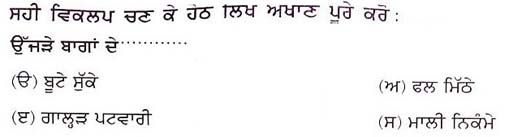 ਸਹੀ ਵਿਕਲਪ ਚਣ ਕੇ ਹੇਠ ਲਿਖ ਅਖਾਣ ਪੂਰੇ ਕਰੋ :
ਉੱਜੜੇ ਬਾਗਾਂ ਦੇ............
(ੳ) ਬੂਟੇ ਸੁੱਕੇ (ਅ) ਫਲ ਮਿੱਠੇ
(ੲ) ਗਾਲ੍ਹੜ ਪਟਵਾਰੀ (ਸ) ਮਾਲੀ ਨਿਕੰਮੇ